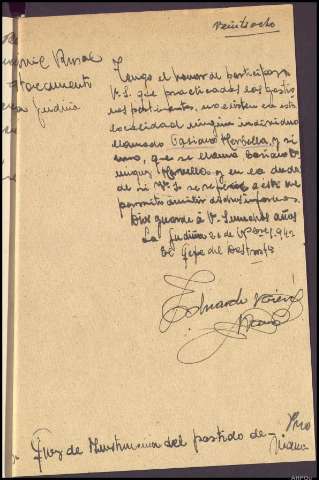 veintiocho
Rural
Destacamento
La Gudiña
Tengo el honor de participar a
V.S. que practicadas las gestio
nes pertinentes, no existe en esta
localidad ningún individuo
llamado Casiano Morbella, y si
uno, que se llama Casiano
Morbella, y en la duda
de si V.S. se refiere a este me
permito emitir dichos informes.
Dios guarde a V.S. muchos años
La Gudiña 21 de 1942
El Jefe del Destmtº
Eduardo
Juez de Instrucción del partido de
Viana